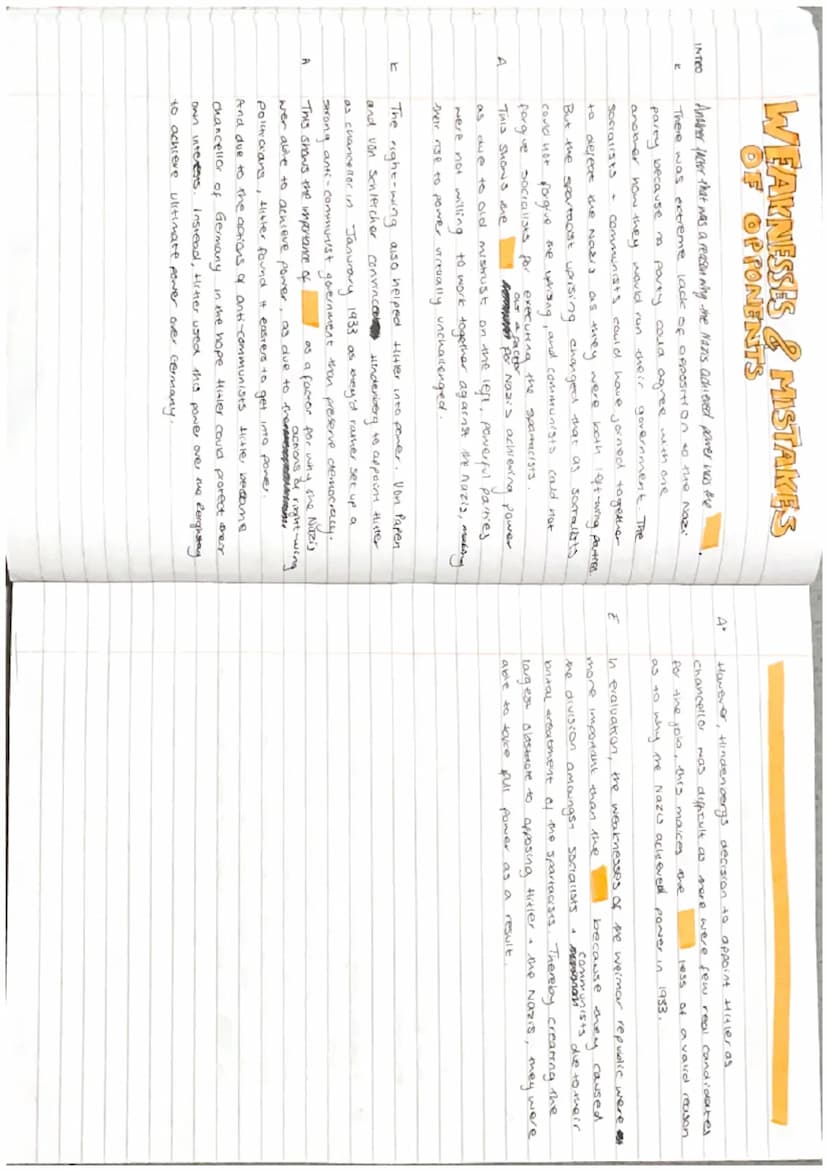 WEAKNESSES & MISTAKES
OF OPPONENTS
INTRO Another factor that was a reason why the Nazis achieved power was the .
K There was extreme lack of opposition to the Nazi
party because no party could agree with one
another how they would run their government. The
socialists + communists could have joined together
to defeat the Nazis as they were both left wing parties.
But the spartacist uprising changed that as socialists
could not forgive the uprising, and communists could not
forgive socialists for executing the spartacists.
A This shows the as a factor for Nazis achieving power
as due to old mistrust on the left, powerful parties
were not willing to work together against the Nazis, making
their rise to power virtually unchallenged.
K The right-wing also helped Hitler into power. Von Papen
and Von Schleicher convinced Hindenberg to appoint Hitler
as chancellor in Janurary 1933 as they'd rather set up a
strong anti-communist government than preserve democracy.
A This shows the importance of as a factor for why the Nazis
wer able to achieve power, as due to the actions of right-wing
politicians, Hitler found it easiers to get into power.
And due to the actions of anti-communists Hitler became
chancellor of Germany in the hope Hitler could protect their
own interests. Instead, Hitler used this power over the Reichstag
to achieve ulitimate power over Germany.
A+ However, Hindenbergs decision to appoint Hitler as
chancellor was difficult as there were few real candidates
for the job, this makes the less of a valid reason
as to why the Nazis achieved power in 1933.
E In evaluation, the weaknesses of the weimar republic were
more important than the because they caused
the division amoungst socialists + communists due to their
brutal treatment of the spartacists. Thereby creating the
largest obstacle to opposing Hitler + the Nazis, they were
able to take full power as a result.